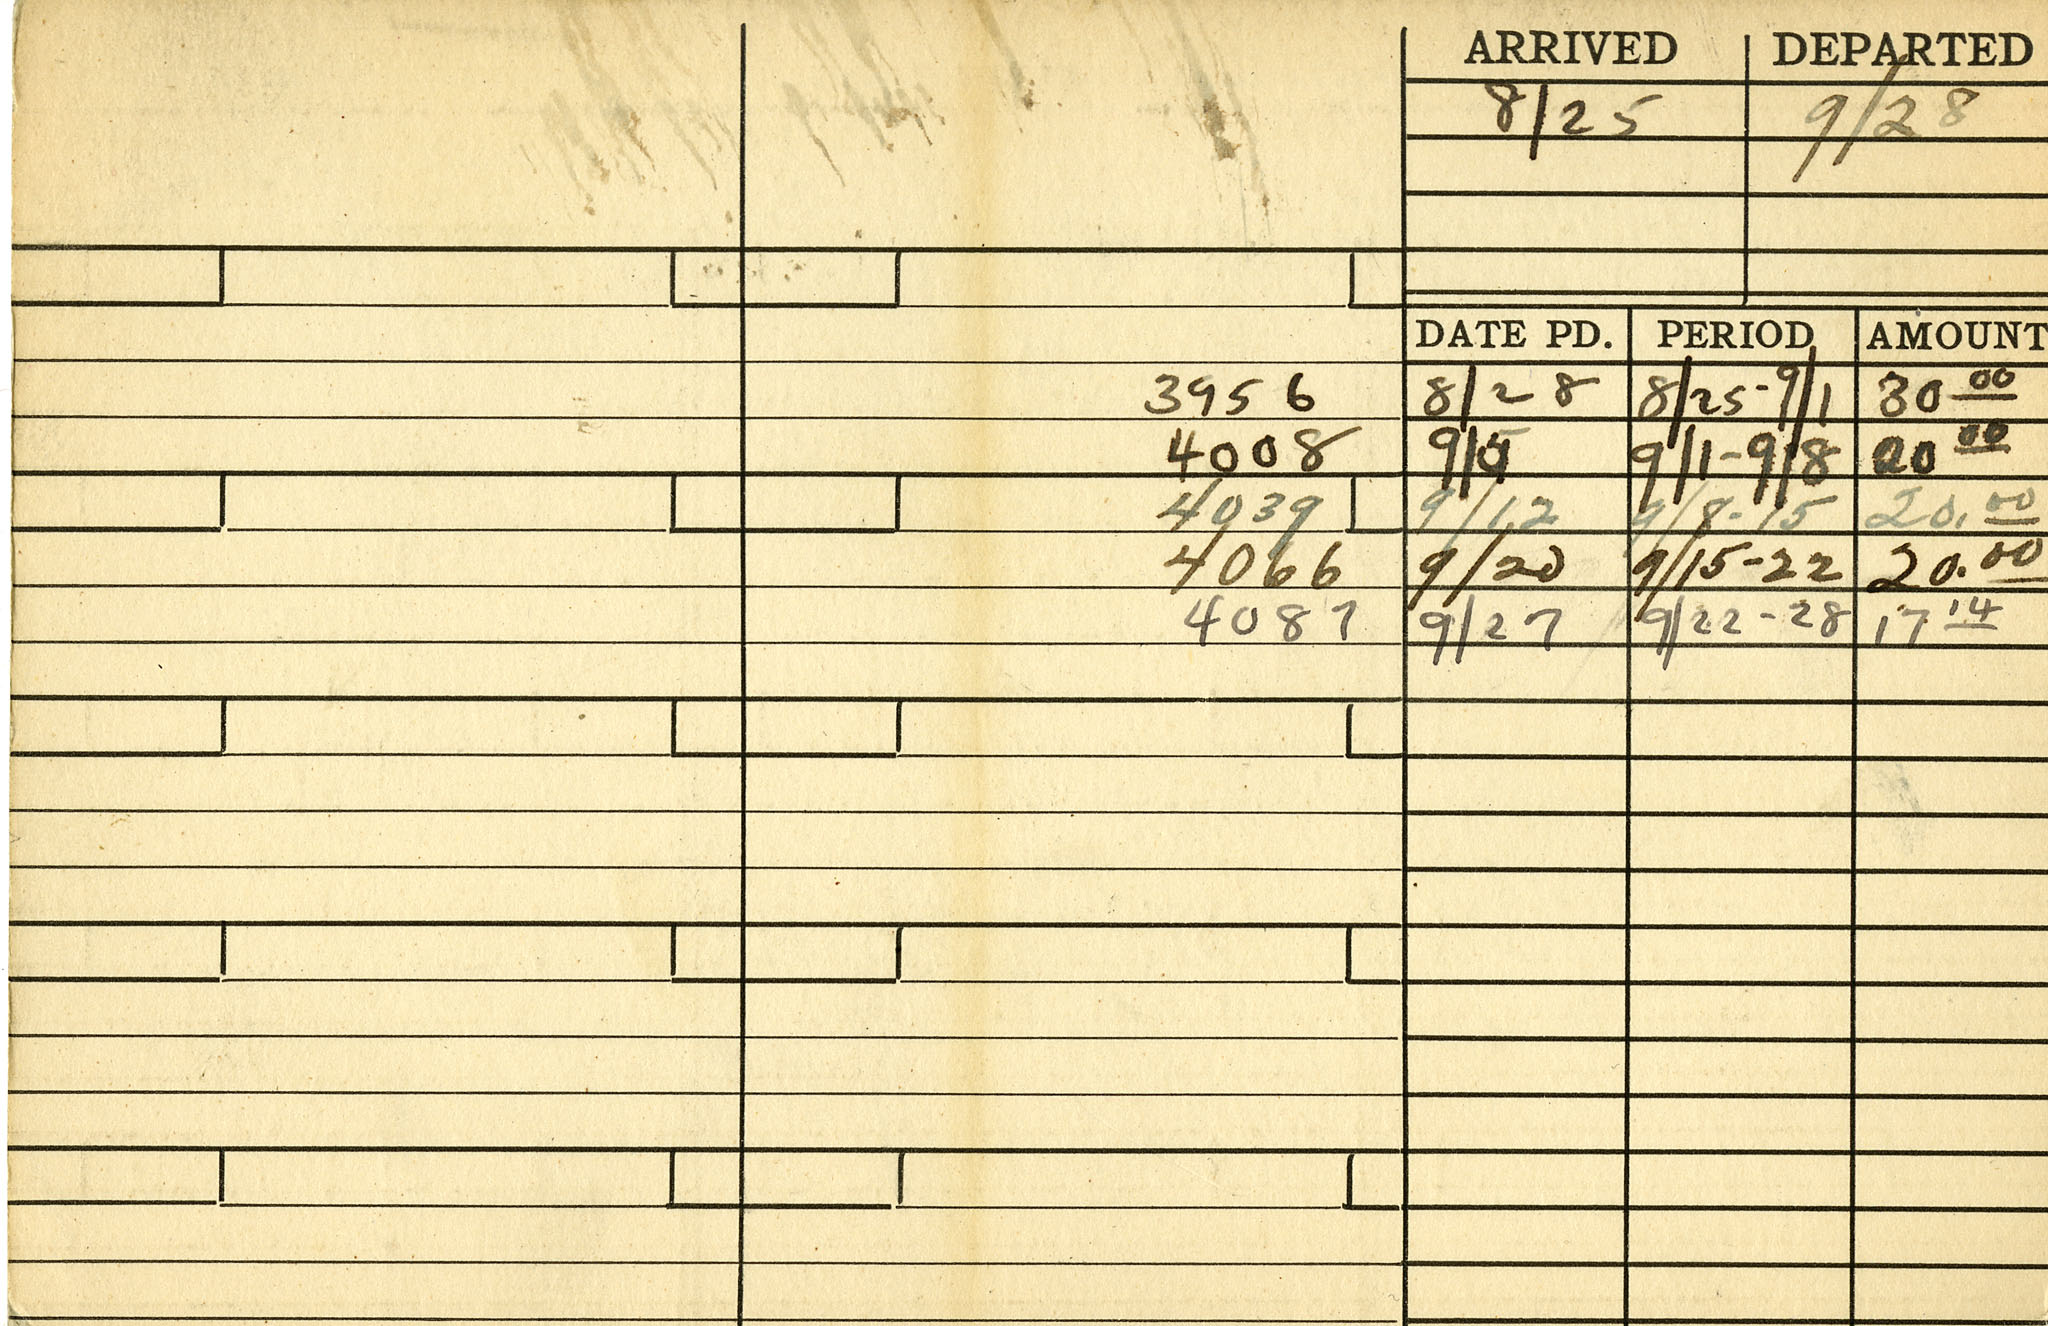 ARRIVED DEPARTED
8/25 9/28
DATE PD. PERIOD AMOUNT
3956 8/28 8/25-9/1 30 00
4008 9/1-9/8 20 00
4039 9/12 9/8-15 20.00
4066 9/20 9/15-22 20.00
4087 9/27 9/22-28 17 14